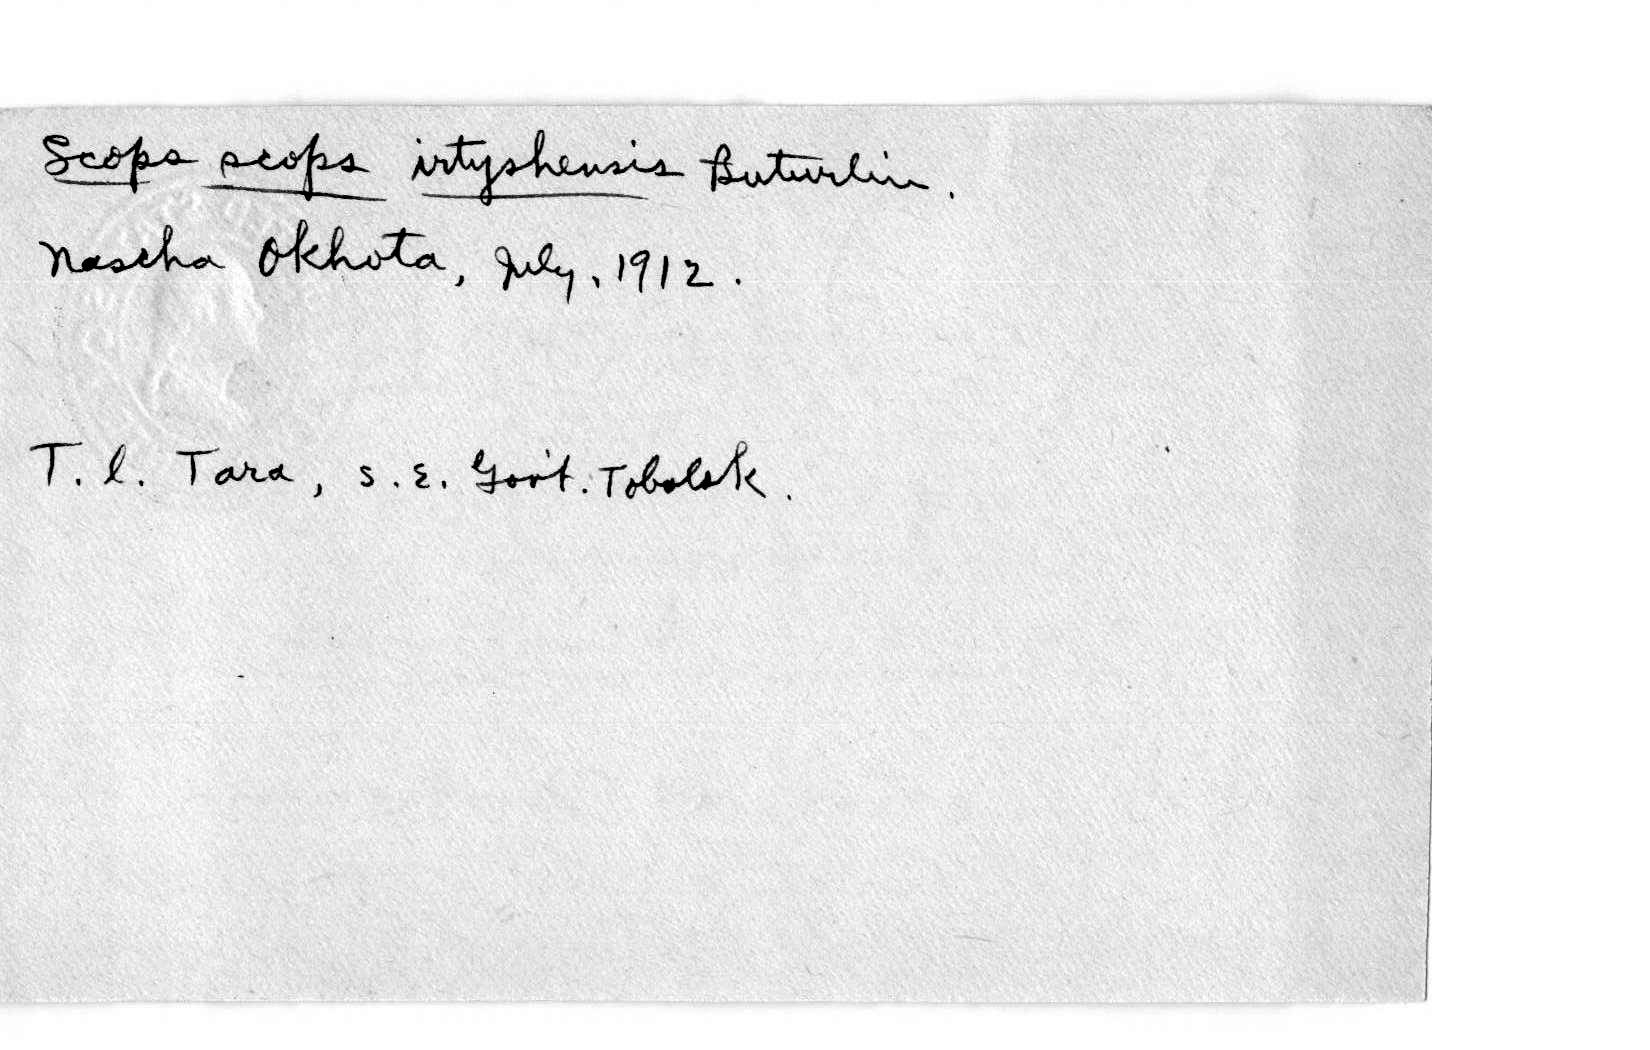 Scops scops irtyshensis Buturlin.
Nascha Okhota, July, 1912.
T. l. Tara, S. E. Gov't. Tobolsk.